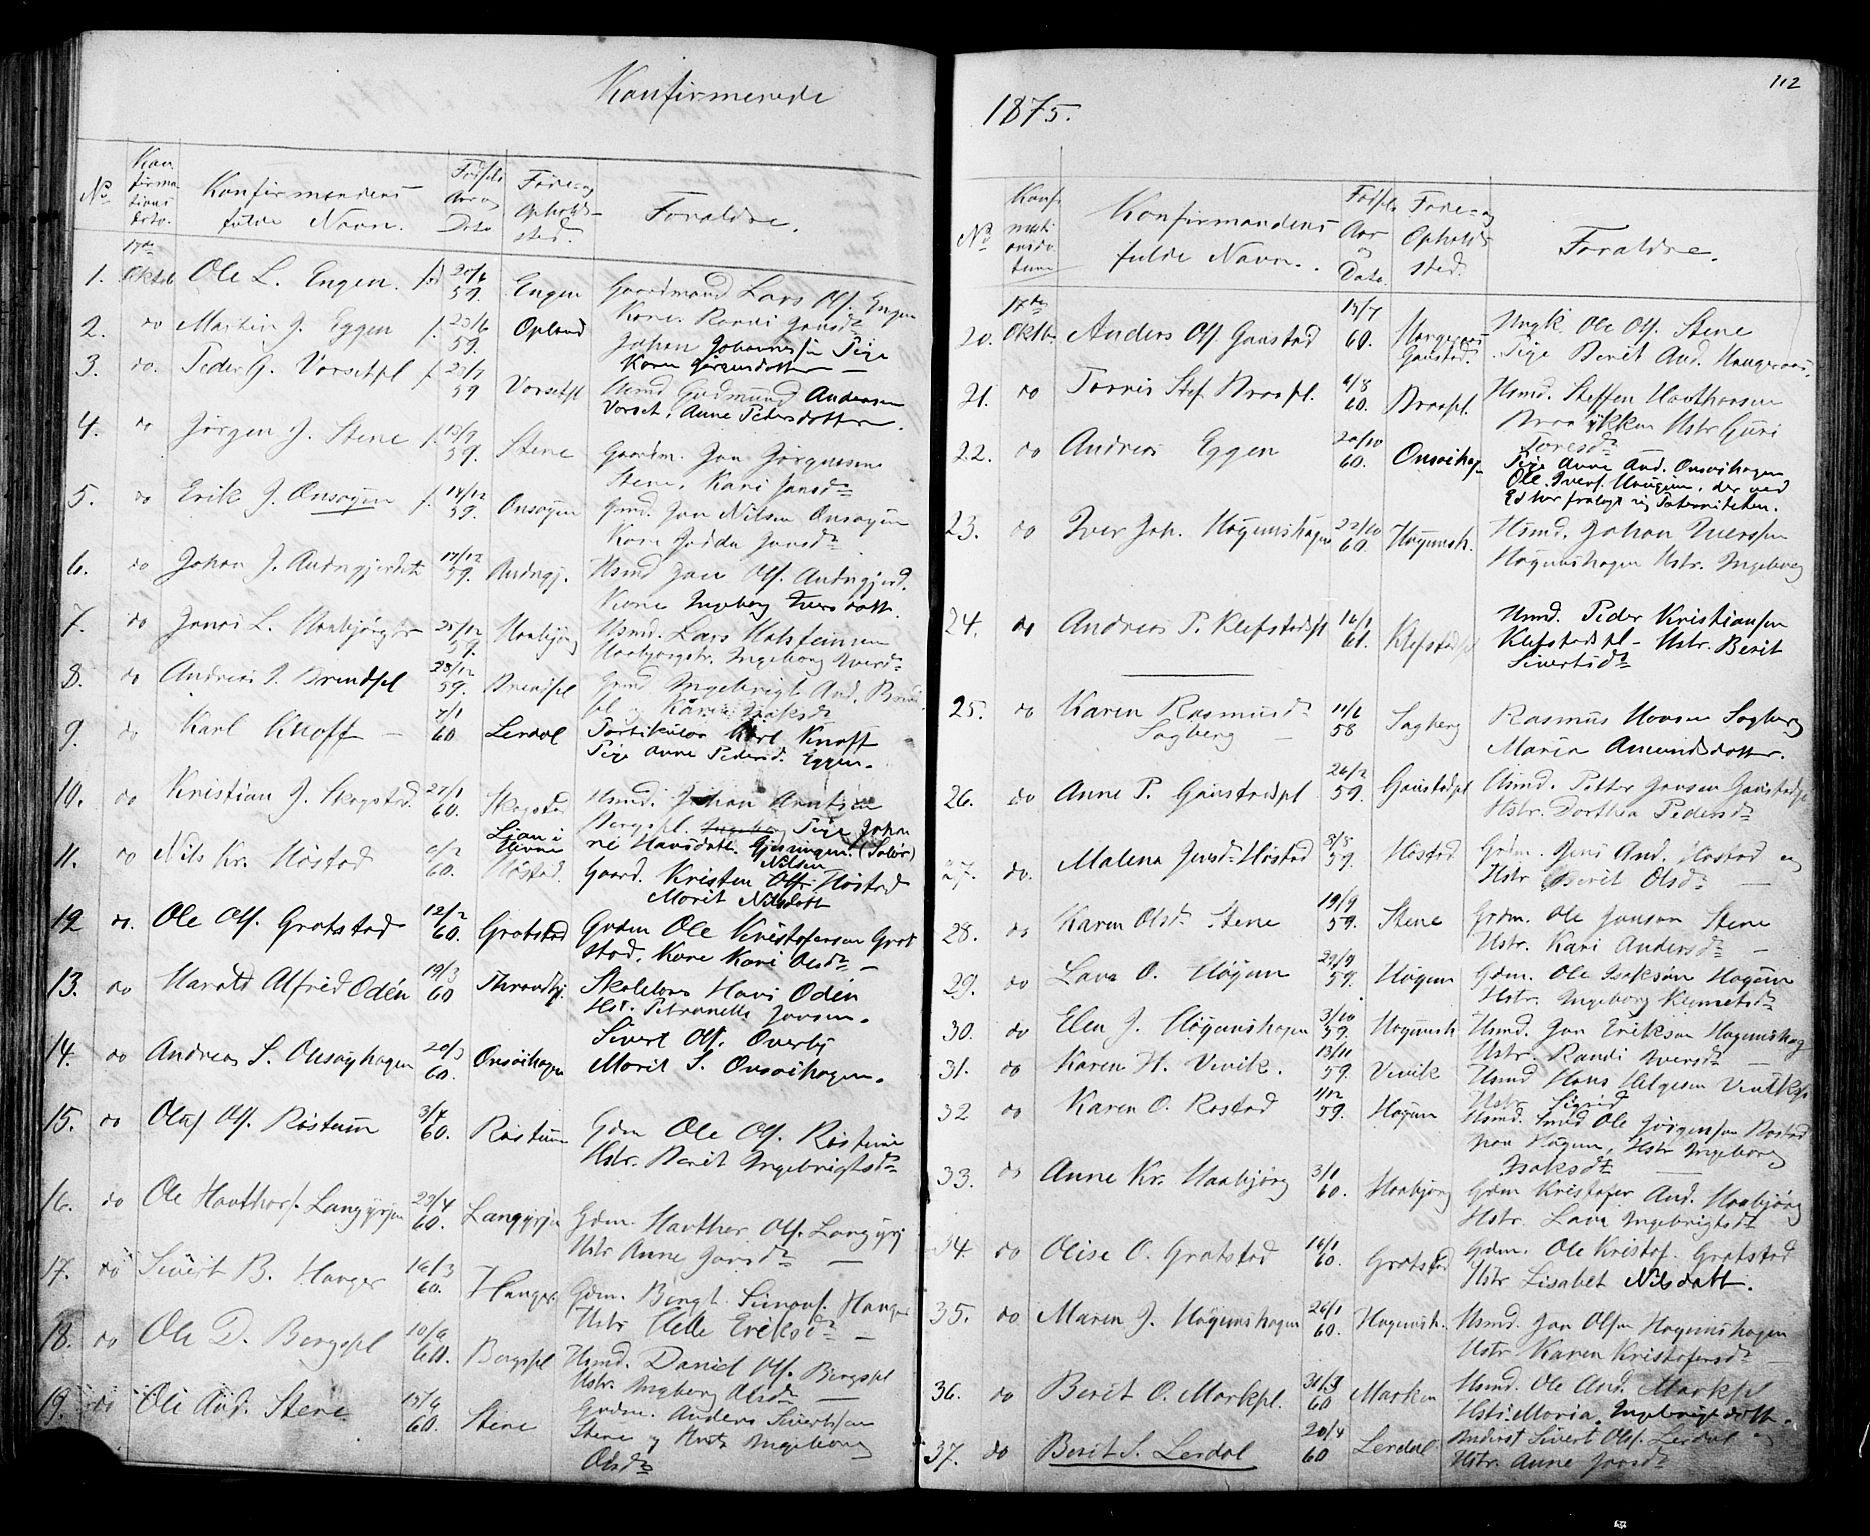 Konfirmerede
No
Kon firma tions Dato.
Konfirmandens fulde Navn.
Fødsels Aar og Dato
Føde- og Opholds- sted.
Forældre.
17de
1. Oktob Ole L. Engen. 20/6 59. Engen Gaardmand Lars Ols. Engen
Kone. Randi Jonsdr
2. do Martin J. Eggen 23/6 59. Opland Johan Johannessen Pige
Karen Jørgensdatter
3. do. Peder G. Vorsetpl 59 Vorsetpl Husmd Gudmund Andersen
Vorset, Anne Pedersdatter.
4. do Jørgen J. Stene 59. Stene Gaardm. Jon Jørgensen
Stene, Kari Jonsdr
5. do Erik J. Onsøyen 14/12 59. Onsøyen Gmd. Jon Nilsen Onsøyen
Kone Jonsdr
6. do Johan J. Aadngjerdet 17/12 59. Aadngj. Husmd Jon Ols. Aadngjerd.
Kone Ingeborg Iversdatt.
7. do L. Haabjørgtr 25/12 59. Haabjørg Husmd. Lars Halstensen
Haabjørgtr. Ingeborg Iversdr
8. do Andreas I. Brendpl 28/12 59. Brendpl Gmd. Ingebrigt And. Brend
pl Karen Isaksdr
9. do Karl Knoff — 7/1 60 Lerdal Partikulær Karl Knoff
Pige Anne Pedersd. Eggen.
10. do Kristian J. Skogstad. 27/1 60. Skogstad Husmd. Johan Arntsen
Bergspl. Pige Johan
Lian i
ne Hansdatt. Gjesningen (Soløer)
11. do Nils Kr. Høstad 60. Høstad. Gaard. Kristen Ols. Høstad
Nilsen
Marit Nilsdatt
12 do. Ole Ols. Grøtstad 12/2 60. Grøtstad Grdm Ole Kristofersen Grøt
stad. Kone Kari Olsdr —
13. do Harald Alfred Odén 19/3 60 Skolelærer Hans Odén
Hst. Petronelle Jonsen.
14. do Andreas S. Onsøyhagen 20/3 60. Onsøihagen Sivert Ols. Overby
Marit S. Onsøihagen.
15. do Oluf Ols. Røstum 3/4 60. Røstum Gdm Ole Ols. Røstum
Hstr. Berit Ingebrigtsdr
16. do Ole Havthors. Langøyjen 23/4 60. Langøyjen Gdm. Havthor Ols. Langøyj
Hstr Anne Jonsdr —
17. do Sivert B. Hanger 16/3 60. Hanger Gdm. Bengt Simons. Hanger
Hstr Helle Eriksdr —
18. do Ole D. Bergspl 10/6 60. Bergspl Husmd. Daniel Ols. Bergspl
Hstr. Ingeborg Olsdr —
19. do Ole And. Stene 15/6 60. Stene Grdm. Anders Sivertsen
Stene og Hustr Ingeborg
Olsdr
112
1875.
No
Konfir mati onsda tum
Konfirmandens fulde Navn.
Fødsels Aar o Dato
Føde- og Opholds sted.
Forældre.
17de
20. Oktbr Anders Ols. Gaustad 13/7 60. Gaustad. Ungk. Ole Ols. Stene
Pige Berit And.
21. do Steff. Braapl. 4/8 60. Braapl. Husmd. Steffen Havthorsen
Hstr Guri
Toresdr
22. do Andreas Eggen 20/10 60. Onsøihagn Pige Anne And. Onsøihagen
Ole Ivers. Haugen, der ved
Ed har fralagt sig Paterniteten.
23. do Iver Joh. Høgumshagen 22/10 60. Høgumsh. Husmd. Johan Iverssen
Høgumshagen Hstr. Ingeborg
24. do Andreas P. Klefstadpl 16/1 61. Klefstadpl Husmd. Peder Kristiansen
Klefstadspl — Hstr. Berit
Sivertsdr
25. do Karen Rasmusdr 11/6 58 Sagberg Rasmus Hansen Sagberg
Sagberg — Maria Amundsdatter.
26. do Anne P. Gaustadpl 26/2 59. Gaustadpl Husmd. Petter Jonsen Gaustadpl
Hstr. Dorthea Pedersdr
27. do. Malena Jensdr Høstad 3/8 59. Høstad Grdm. Jens And. Høstad og
Hstr Berit Olsdr —
28. do Karen Olsdr Stene 19/9 59. Stene Grdm. Ole Jonsen Stene
Hstr. Kari Andersdr —
29. do Lava O. Høgum 29/9 59. Høgum Gdm. Ole Isaksøn Høgum
Hstr. Ingeborg Klemetsdr
30. do Elen J. Høgumshagen 3/10 59. Høgumsh Husmd. Jon Eriksen Høgumshag
Hstr. Randi Iversdr —
31. do Karen H. Vivik. 13/11 59. Vivik Husmd Hans Helgesen Vivikspl
Hstr Sigrid
32 do Karen O. Rostad 1/12 59. Høgum Husmd. Smed Ole Jørgensen Rostad
paa Høgum, Hstr Ingeborg
Isaksdr —
33. do Anne Kr. Haabjørg 3/1 60. Haabjørg Gdm Kristofer And. Haabjørg
Hstr. Lava Ingebrigtsdr
34. do Olise O. Grøtstad 16/1 60. Grøtstad Gdm. Ole Kristof. Grøtstad
Hstr Lisabet Nilsdatt.
35. do Maren J. Høgumshagen 26/1 60. Høgumsh. Husmd. Jon Olsen Høgumshagen
Hstr Karen Kristofersdr —
36. do Berit O. Markpl. 31/3 60 Marken Husmd. Ole And. Markpl
Hstr. Maria Ingebrigtsdatt.
37. do Berit S. Lerdal 20/4 60 Lerdal Sivert Ols. Lerdal og
Hstr. Anne Jonsdr